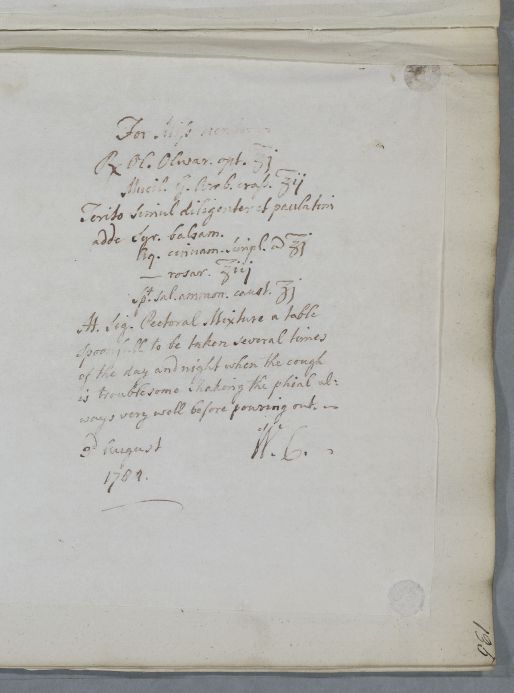 For Miss
℞ Ol. Olivar. opt. ℥j
Mucil. G. Arab. crass. ℥ij
Terito simul diligenter et paulatim
adde Syr. balsam.
Aq. cinnam. simpl. a ℥j
— rosar. ℥iij
Spt. sal. ammon. caust. ʒj
M. Sig. Pectoral Mixture a table
spoonfull to be taken several times
of the day and night when the cough
is troublesome shaking the phial al=
ways very well before pouring out.
August
W. C.
178
136